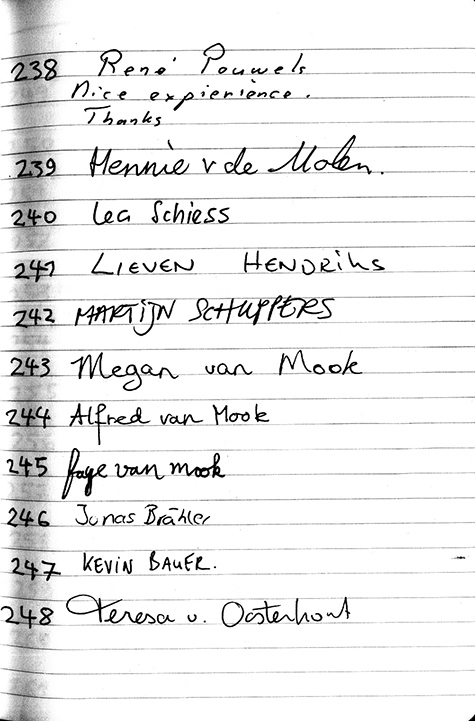 238 René Pouwels
Nice expierience.
Thanks
239 Hennie v de Molen.
240 Lea Schiess
241 LIEVEN HENDRiks
242 MARTIJN SCHUPPERS
243 Megan van Mook
244 Alfred van Mook
245 faye van mook
246 Jonas Brähler
247 KEViN BAUER.
248 Teresa v. Oosterhout